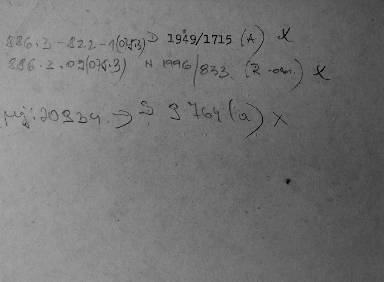 886.3-822-1(075.3) D 1949/1715 (A) X
886.2.09(075.3) N 1996/833. (R-om.) X
mj: 20934 → S 9764 (a) X